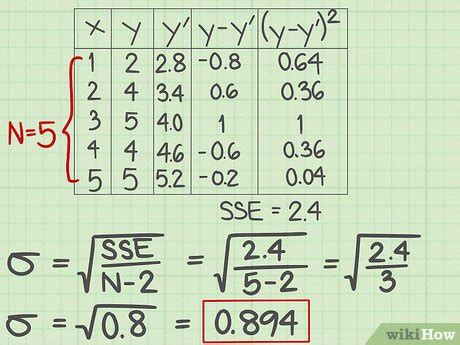 x y y' y-y' (y-y')²
1 2 2.8 -0.8 0.64
2 4 3.4 0.6 0.36
3 5 4.0 1 1
4 4 4.6 -0.6 0.36
5 5 5.2 -0.2 0.04
N=5
SSE = 2.4
σ = √(SSE/N-2) = √(2.4/5-2) = √(2.4/3)
σ = √0.8 = 0.894
wikiHow